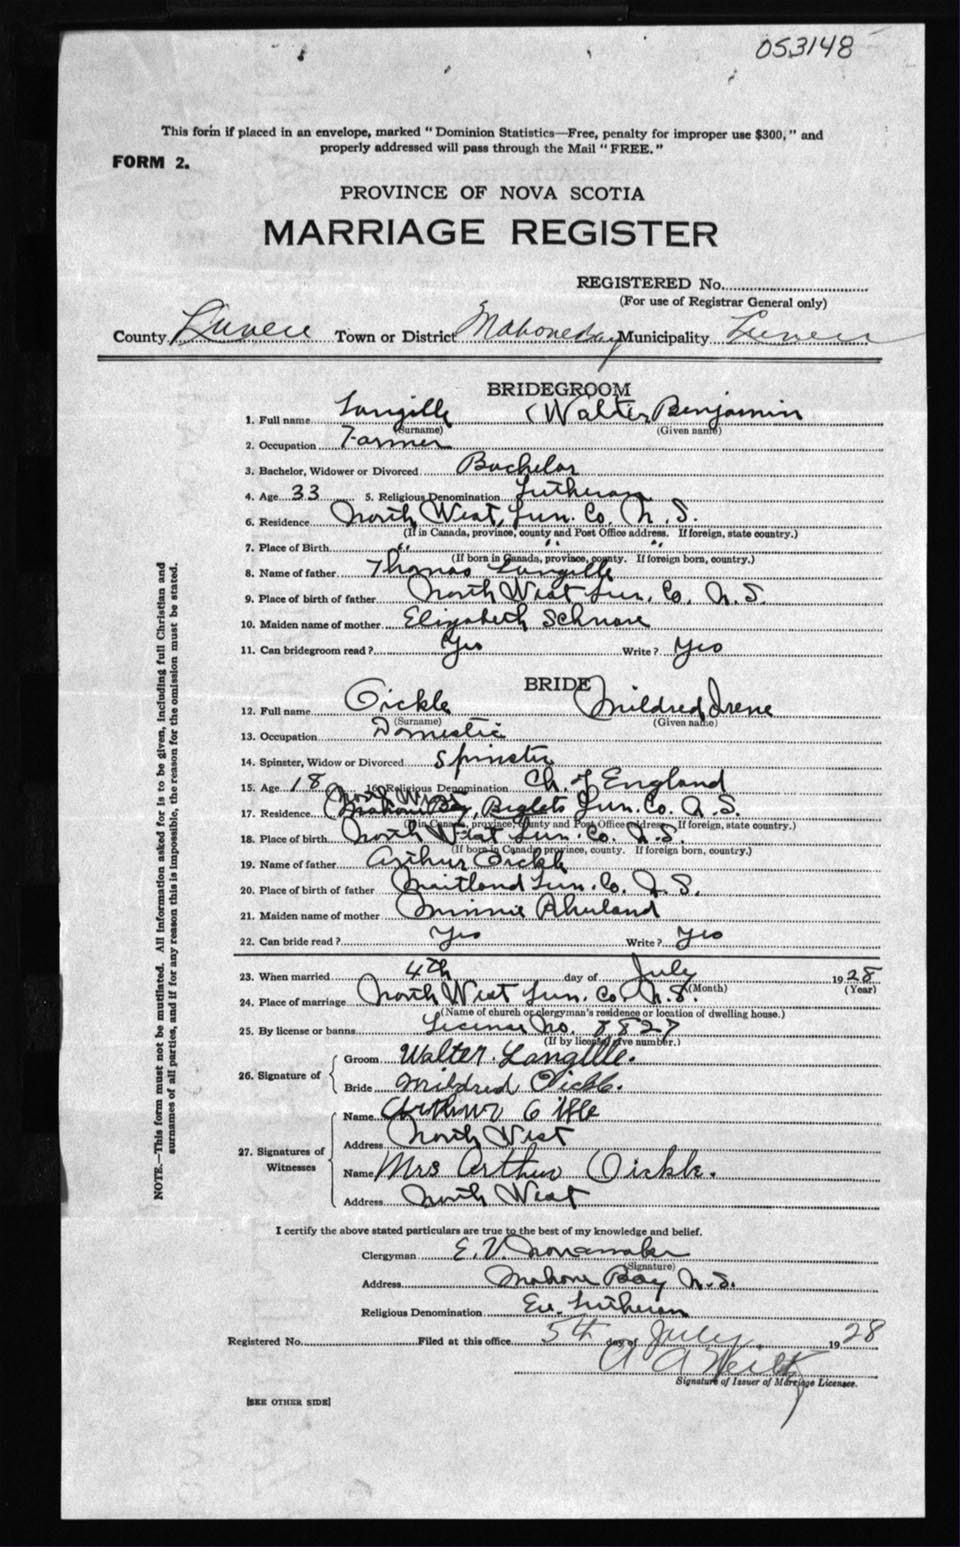 053148
This form if placed in an envelope, marked "Dominion Statistics—Free, penalty for improper use $300," and
properly addressed will pass through the Mail "FREE."
FORM 2.
PROVINCE OF NOVA SCOTIA
MARRIAGE REGISTER
REGISTERED No.
(For use of Registrar General only)
County Lunen Town or District Mahone Bay Municipality Lunen
BRIDEGROOM
1. Full name Langille (Walter Benjamin
(Surname) (Given name)
2. Occupation Farmer
3. Bachelor, Widower or Divorced Bachelor
4. Age 33 5. Religious Denomination Lutheran
6. Residence North West, Lun. Co. N.S.
(If in Canada, province, county and Post Office address. If foreign, state country.)
7. Place of Birth " "
(If born in Canada, province, county. If foreign born, country.)
8. Name of father Thomas Langille
9. Place of birth of father North West Lun. Co. N.S.
10. Maiden name of mother Elizabeth Schnare
11. Can bridegroom read? Yes Write? Yes
BRIDE
12. Full name Oickle Mildred Irene
(Surname) (Given name)
13. Occupation Domestic
14. Spinster, Widow or Divorced Spinster
15. Age 18 16. Religious Denomination Ch. of England
North West
17. Residence Mahone Bay, Lun. Co. N.S.
(If in Canada, province, county and Post Office address. If foreign, state country.)
18. Place of birth North West Lun. Co. N.S.
(If born in Canada, province, county. If foreign born, country.)
19. Name of father Arthur Oickle
20. Place of birth of father Maitland Lun. Co. N.S.
21. Maiden name of mother Minnie Rhuland
22. Can bride read? Yes Write? Yes
23. When married 4th day of July 1928
(Month) (Year)
24. Place of marriage North West Lun. Co. N.S.
(Name of church or clergyman's residence or location of dwelling house.)
25. By license or banns License No. 8827
(If by license, give number.)
26. Signature of
Groom Walter Langille.
Bride Mildred Oickle.
27. Signatures of Witnesses
Name Arthur
Address North West
Name Mrs Arthur Oickle.
Address North West
I certify the above stated particulars are true to the best of my knowledge and belief.
Clergyman E. V. Nonamaker
(Signature)
Address Mahone Bay N.S.
Religious Denomination Ev. Lutheran
Registered No. Filed at this office 5th day of July 1928
A A
Signature of Issuer of Marriage Licenses.
[SEE OTHER SIDE]
NOTE.—This form must not be mutilated. All information asked for is to be given, including full Christian and
surnames of all parties, and if for any reason this is impossible, the reason for the omission must be stated.